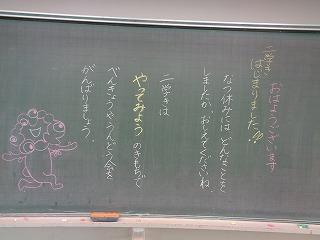 おはようございます
二学き
はじまりました!!
なつ休みには どんなことを
しましたか。おしえてくださいね。
二学きは
やってみよう のきもちで
べんきょうやうんどう会を
がんばりましょう。